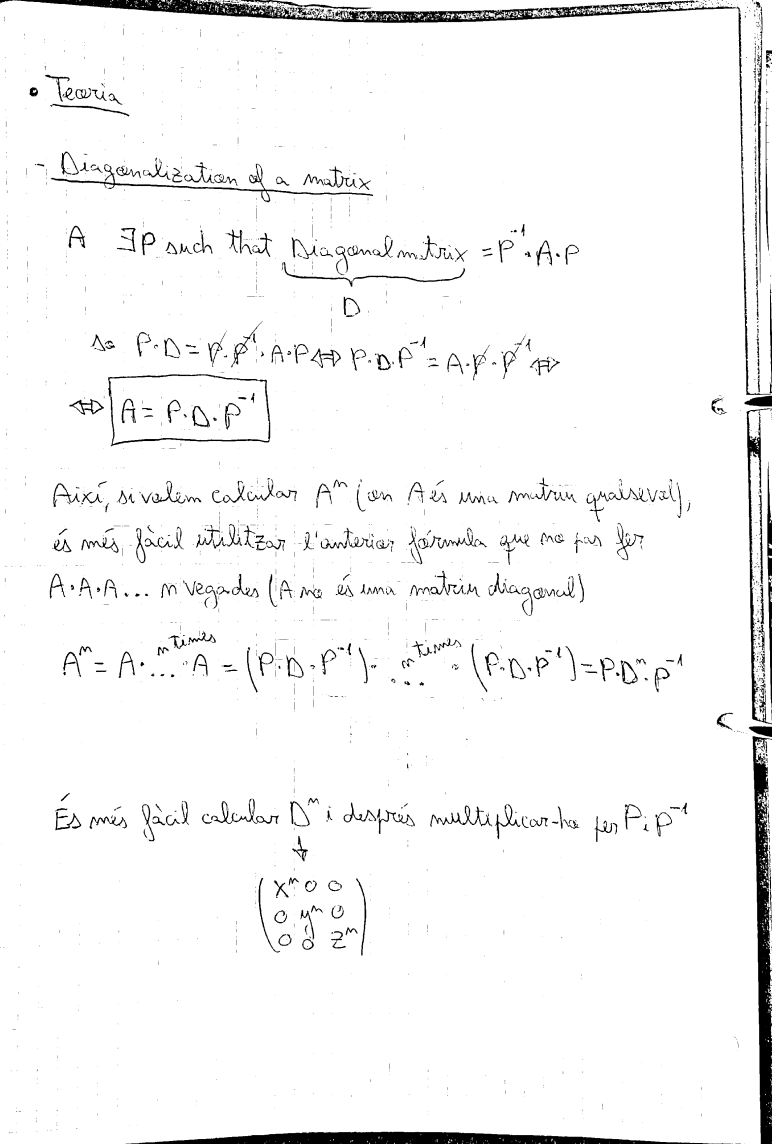 • Teoria
- Diagonalization of a matrix
A ∃P such that Diagonal matrix = P⁻¹·A·P
D
so P·D = P·P⁻¹·A·P ⇔ P·D·P⁻¹ = A·P·P⁻¹ ⇔
⇔ A = P·D·P⁻¹
Així, si volem calcular Aⁿ (on A és una matriu qualsevol),
és més fàcil utilitzar l'anterior fórmula que no pas fer
A·A·A... n vegades (A no és una matriu diagonal)
Aⁿ = A· ...ⁿ ᵗⁱᵐᵉˢ ·A = (P·D·P⁻¹)· ...ⁿ ᵗⁱᵐᵉˢ ·(P·D·P⁻¹) = P·Dⁿ·P⁻¹
És més fàcil calcular Dⁿ i després multiplicar-ho per P i P⁻¹
↓
(xⁿ 0 0
0 yⁿ 0
0 0 zⁿ)